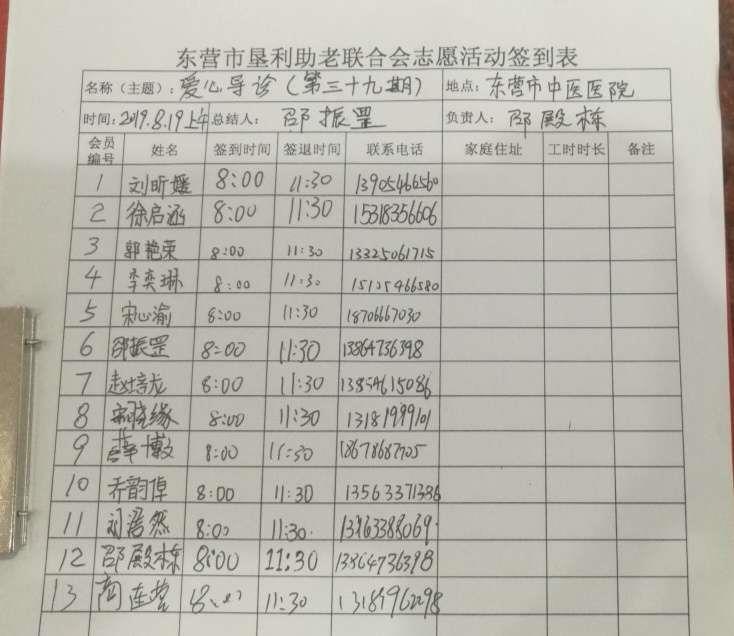 东营市垦利助老联合会志愿活动签到表
名称(主题): 爱心导诊(第三十九期) 地点: 东营市中医医院
时间: 2019.8.19上午 总结人: 邵振罡 负责人: 邵殿栋
会员编号 姓名 签到时间 签退时间 联系电话 家庭住址 工时时长 备注
1 刘昕媛 8:00 11:30 13905466560
2 徐启涵 8:00 11:30 15318356606
3 郭艳荣 8:00 11:30 13325061715
4 李奕琳 8:00 11:30 15125466580
5 宋心渝 8:00 11:30 18706667030
6 邵振罡 8:00 11:30 13864736398
7 赵培龙 8:00 11:30 13854615086
8 缘 8:00 11:30 13181999101
9 薛博文 8:00 11:30
10 乔韵倬 8:00 11:30 13563371336
11 浩然 8:00 11:30
12 邵殿栋 8:00 11:30 13864736398
13 商连营 8:00 11:30